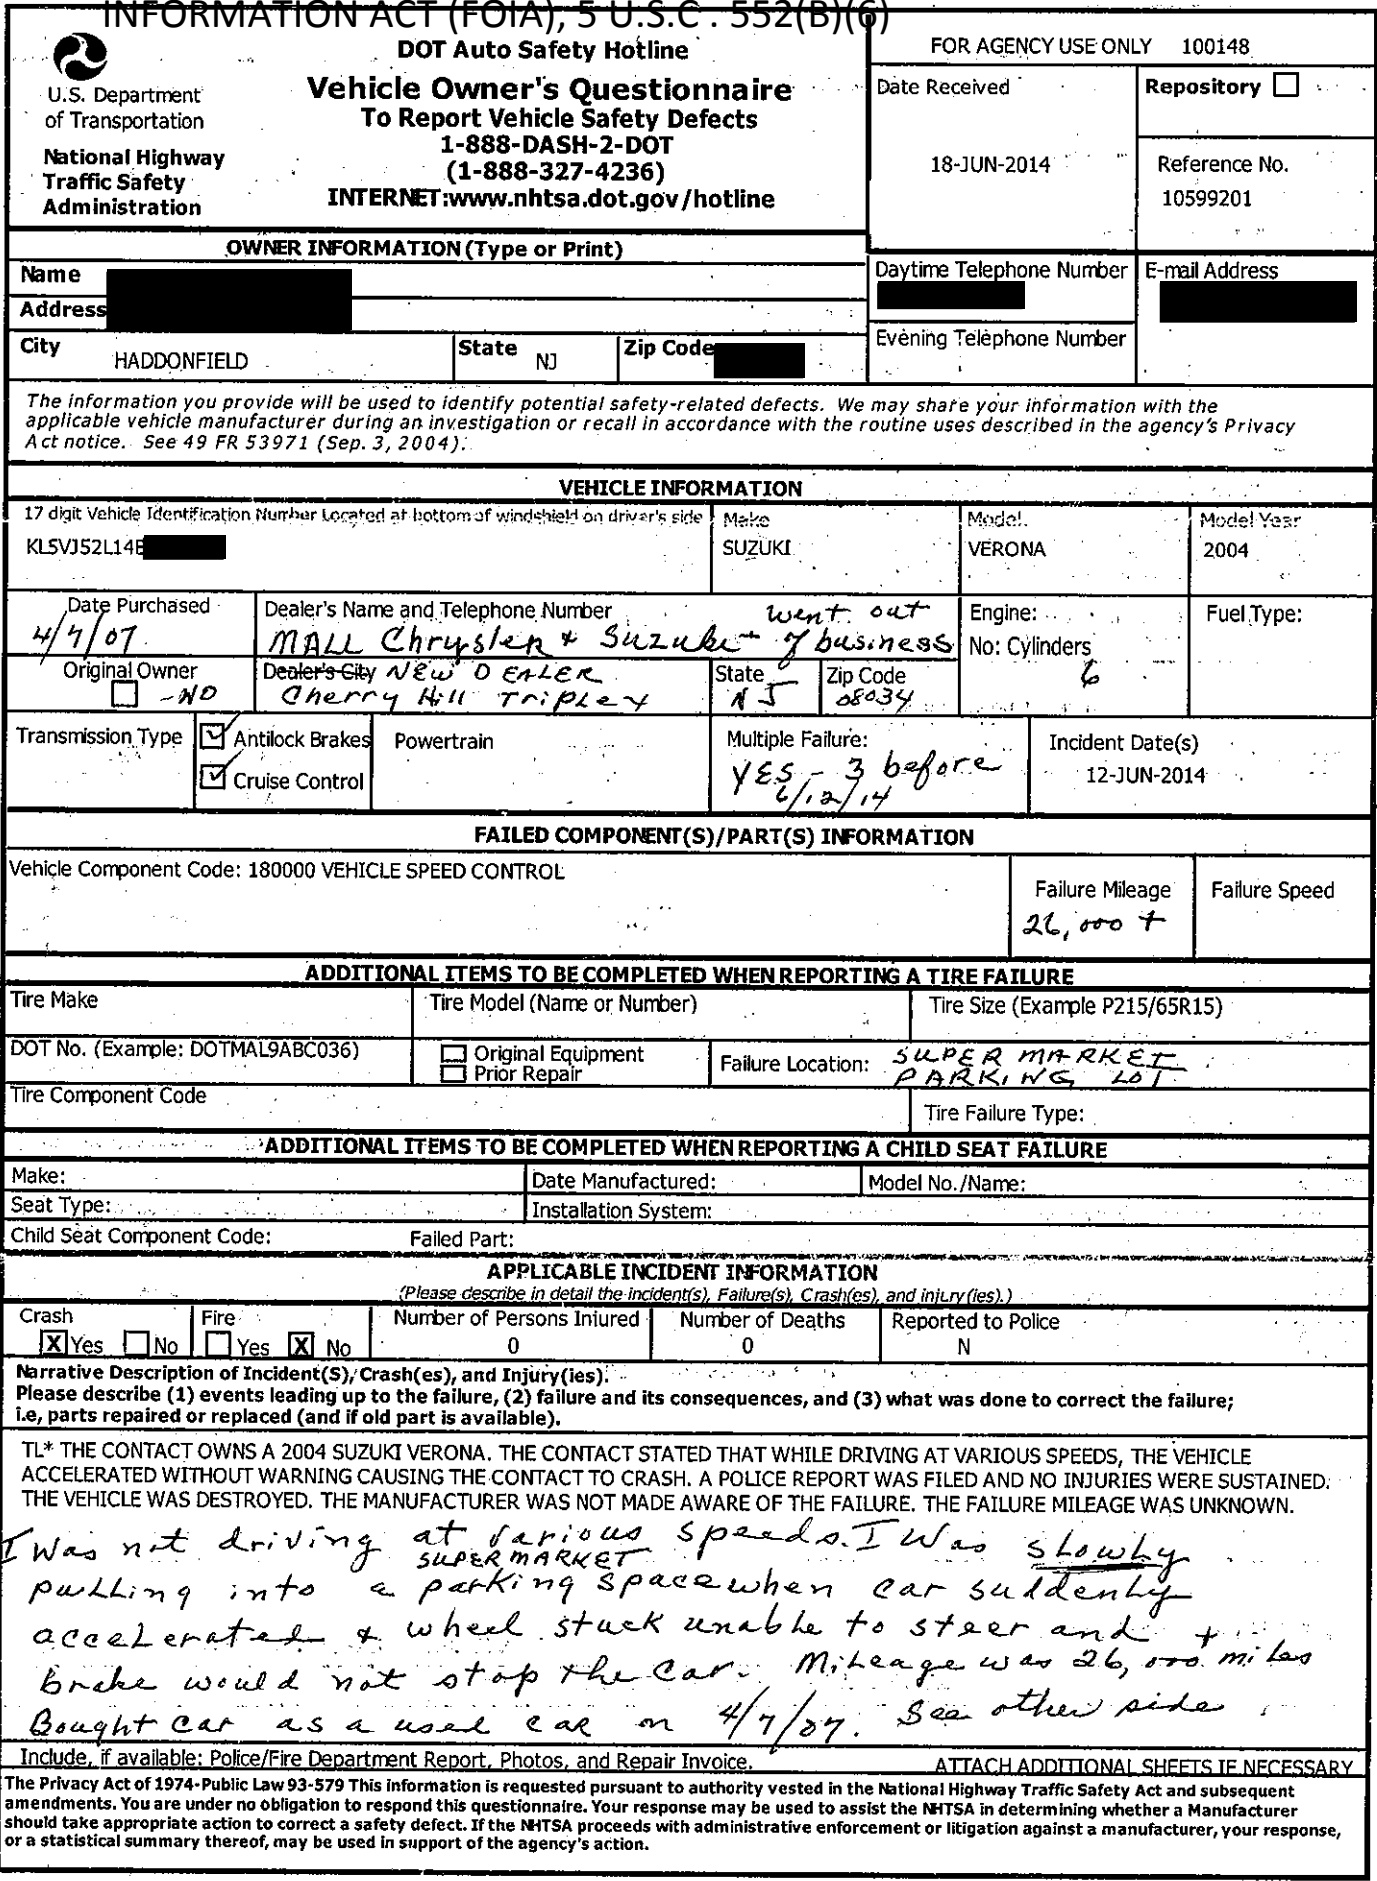 INFORMATION ACT (FOIA), 5 U.S.C . 552(B)(6)
U.S. Department
of Transportation
National Highway
Traffic Safety
Administration
DOT Auto Safety Hotline
Vehicle Owner's Questionnaire
To Report Vehicle Safety Defects
1-888-DASH-2-DOT
(1-888-327-4236)
INTERNET:www.nhtsa.dot.gov/hotline
FOR AGENCY USE ONLY 100148
Date Received
18-JUN-2014
Repository
Reference No.
10599201
OWNER INFORMATION (Type or Print)
Name
Address
City HADDONFIELD State NJ Zip Code
Daytime Telephone Number
E-mail Address
Evening Telephone Number
The information you provide will be used to identify potential safety-related defects. We may share your information with the
applicable vehicle manufacturer during an investigation or recall in accordance with the routine uses described in the agency's Privacy
Act notice. See 49 FR 53971 (Sep. 3, 2004).
VEHICLE INFORMATION
17 digit Vehicle Identification Number Located at bottom of windshield on driver's side
KL5VJ52L14B
Make
SUZUKI
Model
VERONA
Model Year
2004
Date Purchased
4/7/07
Dealer's Name and Telephone Number
MALL Chrysler + Suzuki - went out of business
Engine:
No: Cylinders
6
Fuel Type:
Original Owner
- NO
Dealer's City NEW DEALER
Cherry Hill Triplex
State
NJ
Zip Code
08034
Transmission Type
Antilock Brakes
Cruise Control
Powertrain
Multiple Failure:
YES - 3 before
6/12/14
Incident Date(s)
12-JUN-2014
FAILED COMPONENT(S)/PART(S) INFORMATION
Vehicle Component Code: 180000 VEHICLE SPEED CONTROL
Failure Mileage
26,000 +
Failure Speed
ADDITIONAL ITEMS TO BE COMPLETED WHEN REPORTING A TIRE FAILURE
Tire Make
Tire Model (Name or Number)
Tire Size (Example P215/65R15)
DOT No. (Example: DOTMAL9ABC036)
Original Equipment
Prior Repair
Failure Location: SUPER MARKET
PARKING LOT
Tire Component Code
Tire Failure Type:
ADDITIONAL ITEMS TO BE COMPLETED WHEN REPORTING A CHILD SEAT FAILURE
Make:
Date Manufactured:
Model No./Name:
Seat Type:
Installation System:
Child Seat Component Code:
Failed Part:
APPLICABLE INCIDENT INFORMATION
(Please describe in detail the incident(s), Failure(s), Crash(es), and injury(ies).)
Crash
X Yes No
Fire
Yes X No
Number of Persons Injured
0
Number of Deaths
0
Reported to Police
N
Narrative Description of Incident(S), Crash(es), and Injury(ies).
Please describe (1) events leading up to the failure, (2) failure and its consequences, and (3) what was done to correct the failure;
i.e, parts repaired or replaced (and if old part is available).
TL* THE CONTACT OWNS A 2004 SUZUKI VERONA. THE CONTACT STATED THAT WHILE DRIVING AT VARIOUS SPEEDS, THE VEHICLE
ACCELERATED WITHOUT WARNING CAUSING THE CONTACT TO CRASH. A POLICE REPORT WAS FILED AND NO INJURIES WERE SUSTAINED.
THE VEHICLE WAS DESTROYED. THE MANUFACTURER WAS NOT MADE AWARE OF THE FAILURE. THE FAILURE MILEAGE WAS UNKNOWN.
I Was not driving at various speeds. I Was slowly
pulling into a SUPERMARKET parking space when car suddenly
accelerated + wheel stuck unable to steer and +
brake would not stop the car. Mileage was 26,000 miles
Bought car as a used car on 4/7/07. See other side
Include, if available: Police/Fire Department Report, Photos, and Repair Invoice.
ATTACH ADDITIONAL SHEETS IF NECESSARY
The Privacy Act of 1974-Public Law 93-579 This information is requested pursuant to authority vested in the National Highway Traffic Safety Act and subsequent
amendments. You are under no obligation to respond this questionnaire. Your response may be used to assist the NHTSA in determining whether a Manufacturer
should take appropriate action to correct a safety defect. If the NHTSA proceeds with administrative enforcement or litigation against a manufacturer, your response,
or a statistical summary thereof, may be used in support of the agency's action.